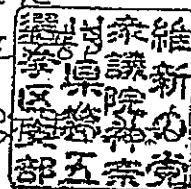 維新の党
衆議院神奈
川県第五
選挙区支部